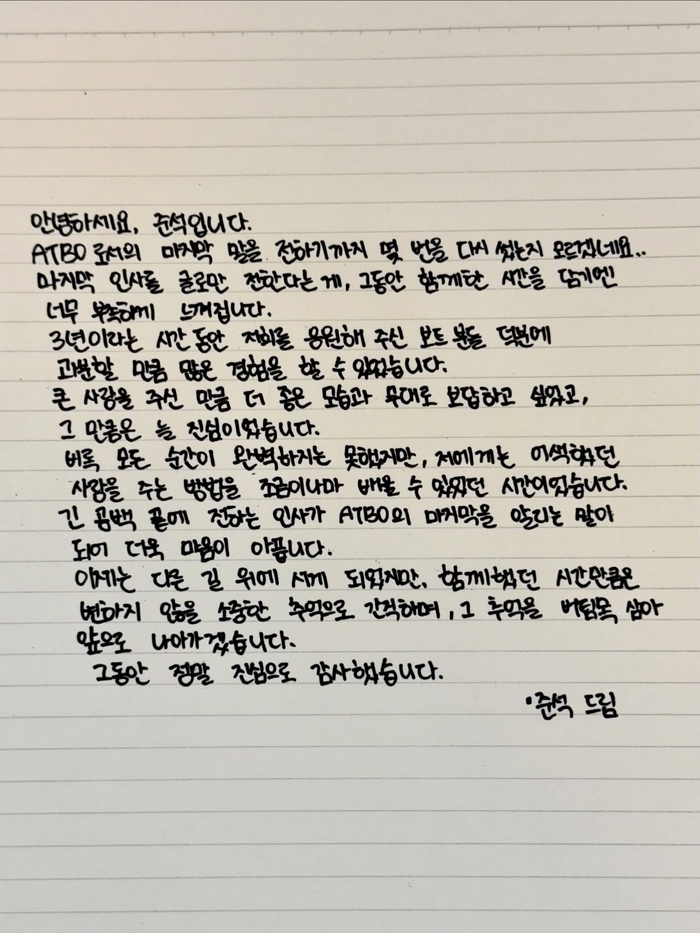 안녕하세요, 준석입니다.
ATBO로서의 마지막 말을 전하기까지 몇 번을 다시 썼는지 모르겠네요..
마지막 인사를 글로만 전한다는 게, 그동안 함께한 시간을 담기엔
너무 부족하게 느껴집니다.
3년이라는 시간 동안 저희를 응원해 주신 보트 분들 덕분에
과분할 만큼 많은 경험을 할 수 있었습니다.
큰 사랑을 주신 만큼 더 좋은 모습과 무대로 보답하고 싶었고,
그 마음은 늘 진심이었습니다.
비록 모든 순간이 완벽하지는 못했지만, 저에게는 어색했던
사랑을 주는 방법을 조금이나마 배울 수 있었던 시간이었습니다.
긴 공백 끝에 전하는 인사가 ATBO의 마지막을 알리는 말이
되어 더욱 마음이 아픕니다.
이제는 다른 길 위에 서게 되었지만, 함께했던 시간만큼은
변하지 않을 소중한 추억으로 간직하며, 그 추억을 버팀목 삼아
앞으로 나아가겠습니다.
그동안 정말 진심으로 감사했습니다.
·준석 드림